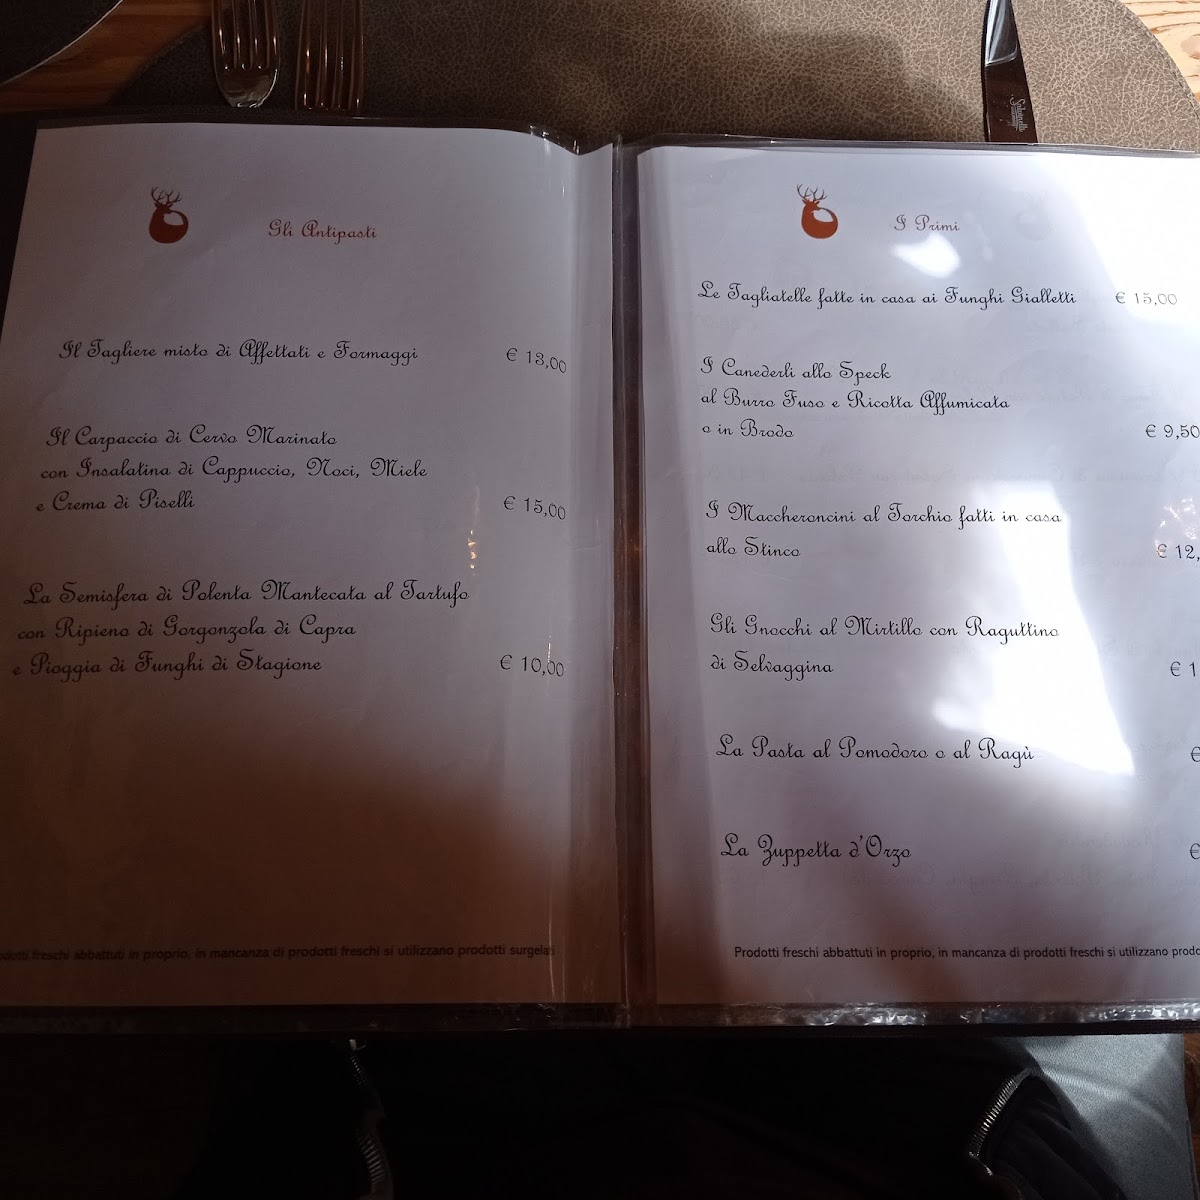 Gli Antipasti
Il Tagliere misto di Affettati e Formaggi € 13,00
Il Carpaccio di Cervo Marinato
con Insalatina di Cappuccio, Noci, Miele
e Crema di Piselli € 15,00
La Semisfera di Polenta Mantecata al Tartufo
con Ripieno di Gorgonzola di Capra
e Pioggia di Funghi di Stagione € 10,00
freschi abbattuti in proprio, in mancanza di prodotti freschi si utilizzano prodotti surgelati
I Primi
Le Tagliatelle fatte in casa ai Funghi Gialletti € 15,00
I Canederli allo Speck
al Burro Fuso e Ricotta Affumicata
o in Brodo € 9,50
I Maccheroncini al Torchio fatti in casa
allo Stinco € 12,
Gli Gnocchi al Mirtillo con Raguttino
di Selvaggina € 1
La Pasta al Pomodoro o al Ragù €
La Zuppetta d'Orzo €
Prodotti freschi abbattuti in proprio, in mancanza di prodotti freschi si utilizzano prodo